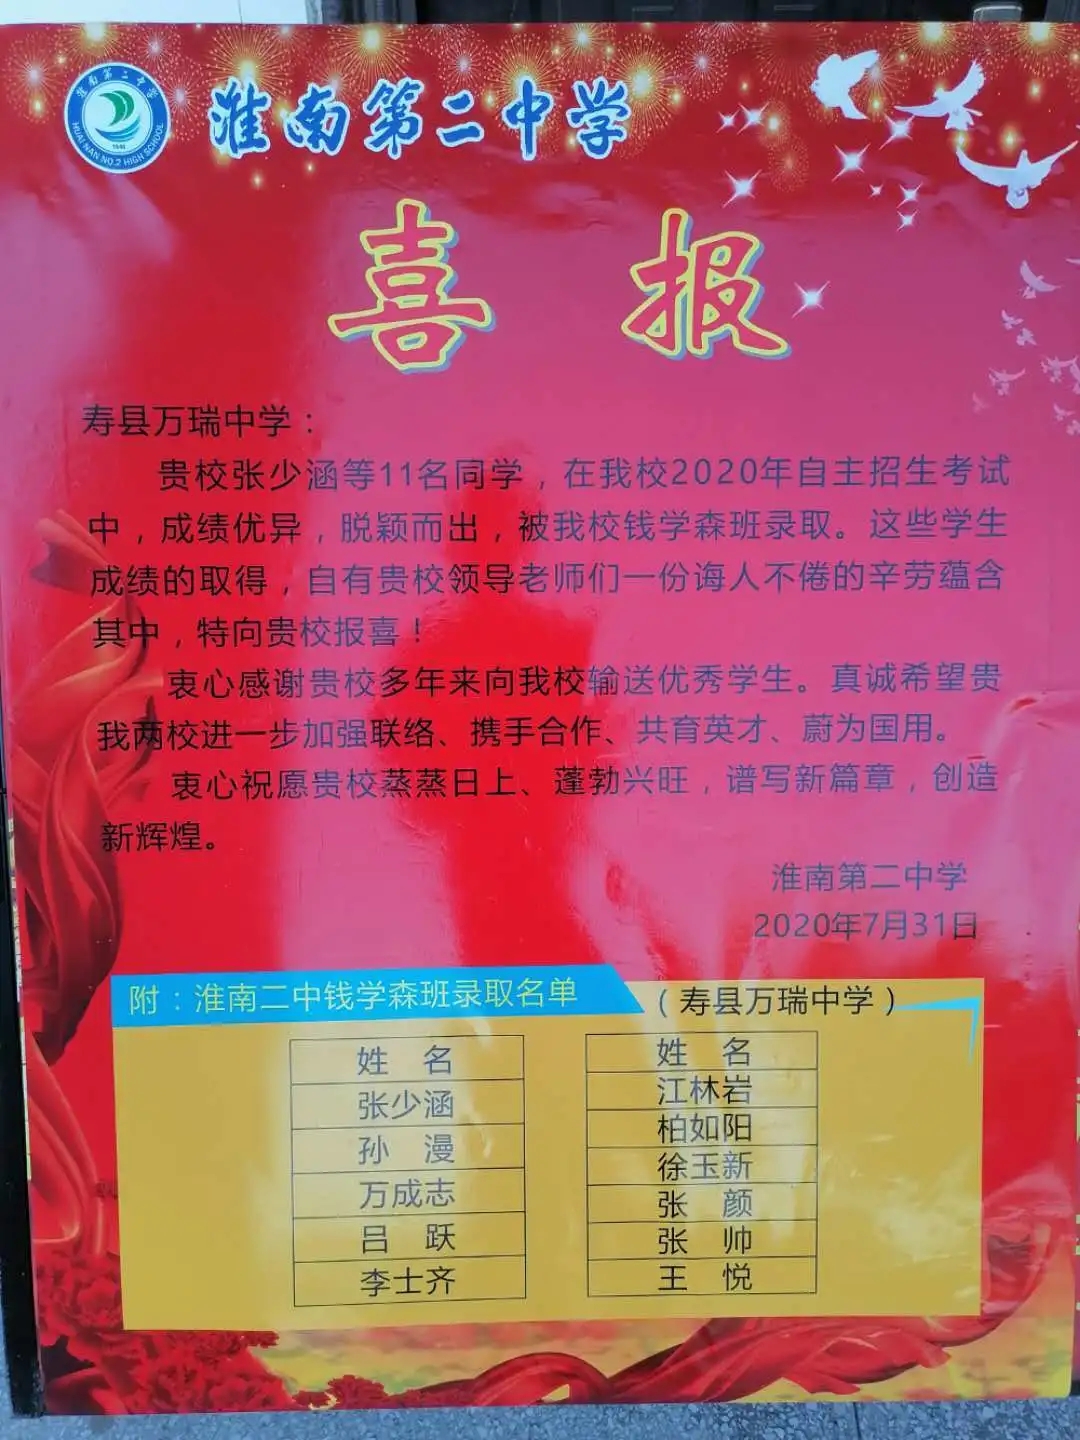 淮南第二中学
HUAI NAN NO.2 HIGH SCHOOL
1946
淮南第二中学
喜报
寿县万瑞中学：
贵校张少涵等11名同学，在我校2020年自主招生考试
中，成绩优异，脱颖而出，被我校钱学森班录取。这些学生
成绩的取得，自有贵校领导老师们一份诲人不倦的辛劳蕴含
其中，特向贵校报喜！
衷心感谢贵校多年来向我校输送优秀学生。真诚希望贵
我两校进一步加强联络、携手合作、共育英才、蔚为国用。
衷心祝愿贵校蒸蒸日上、蓬勃兴旺，谱写新篇章，创造
新辉煌。
淮南第二中学
2020年7月31日
附：淮南二中钱学森班录取名单
（寿县万瑞中学）
姓 名
张少涵
孙 漫
万成志
吕 跃
李士齐
姓 名
江林岩
柏如阳
徐玉新
张 颜
张 帅
王 悦